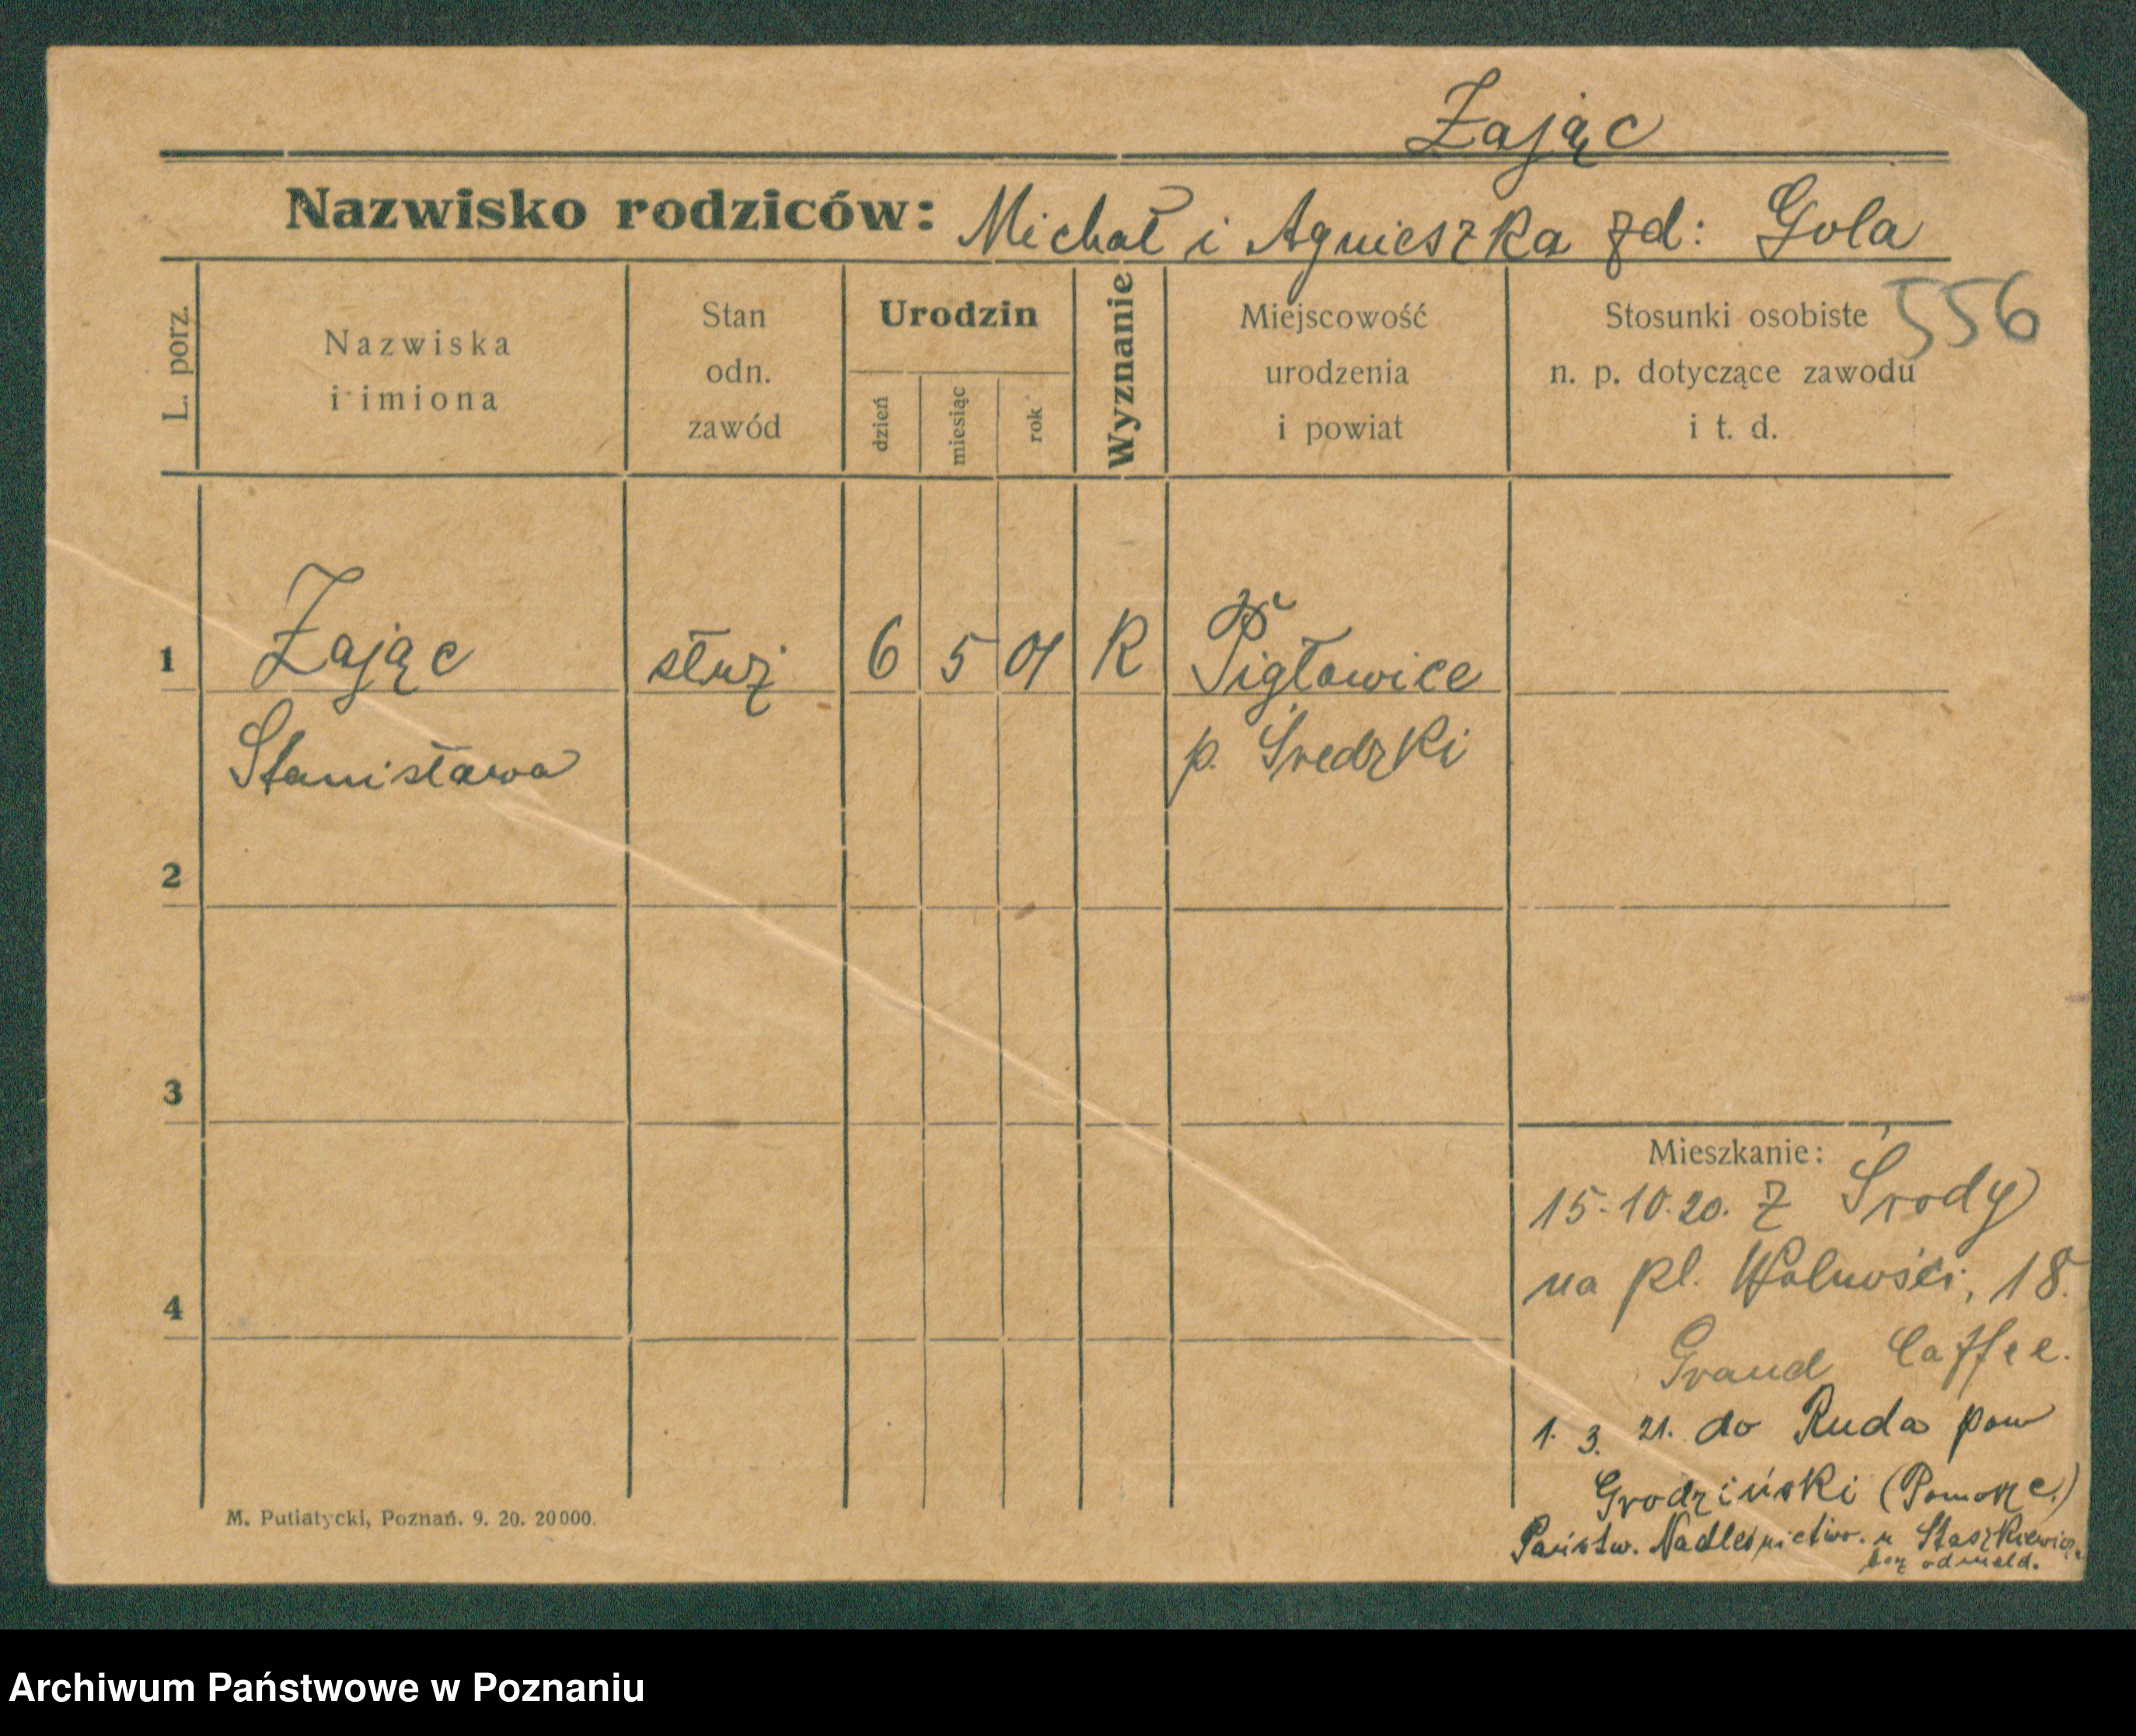 Zając
Nazwisko rodziców: Michał i Agnieszka zd: Gola
556
L. porz.
Nazwiska
i imiona
Stan
odn.
zawód
Urodzin
dzień
miesiąc
rok
Wyznanie
Miejscowość
urodzenia
i powiat
Stosunki osobiste
n. p. dotyczące zawodu
i t. d.
1
Zając
służ
6
5
01
R
Pigłowice
Stanisława
p. Średzki
2
3
4
Mieszkanie:
15.10.20. z Środy
na pl. Wolności, 18.
Grand Caffee.
1. 3. 21. do Ruda pow
Grodziński (Pomorze.)
Państw. Nadleśnictwo. u Staszkiewicz.
bez odmeld.
M. Putiatycki, Poznań. 9. 20. 20000.
Archiwum Państwowe w Poznaniu